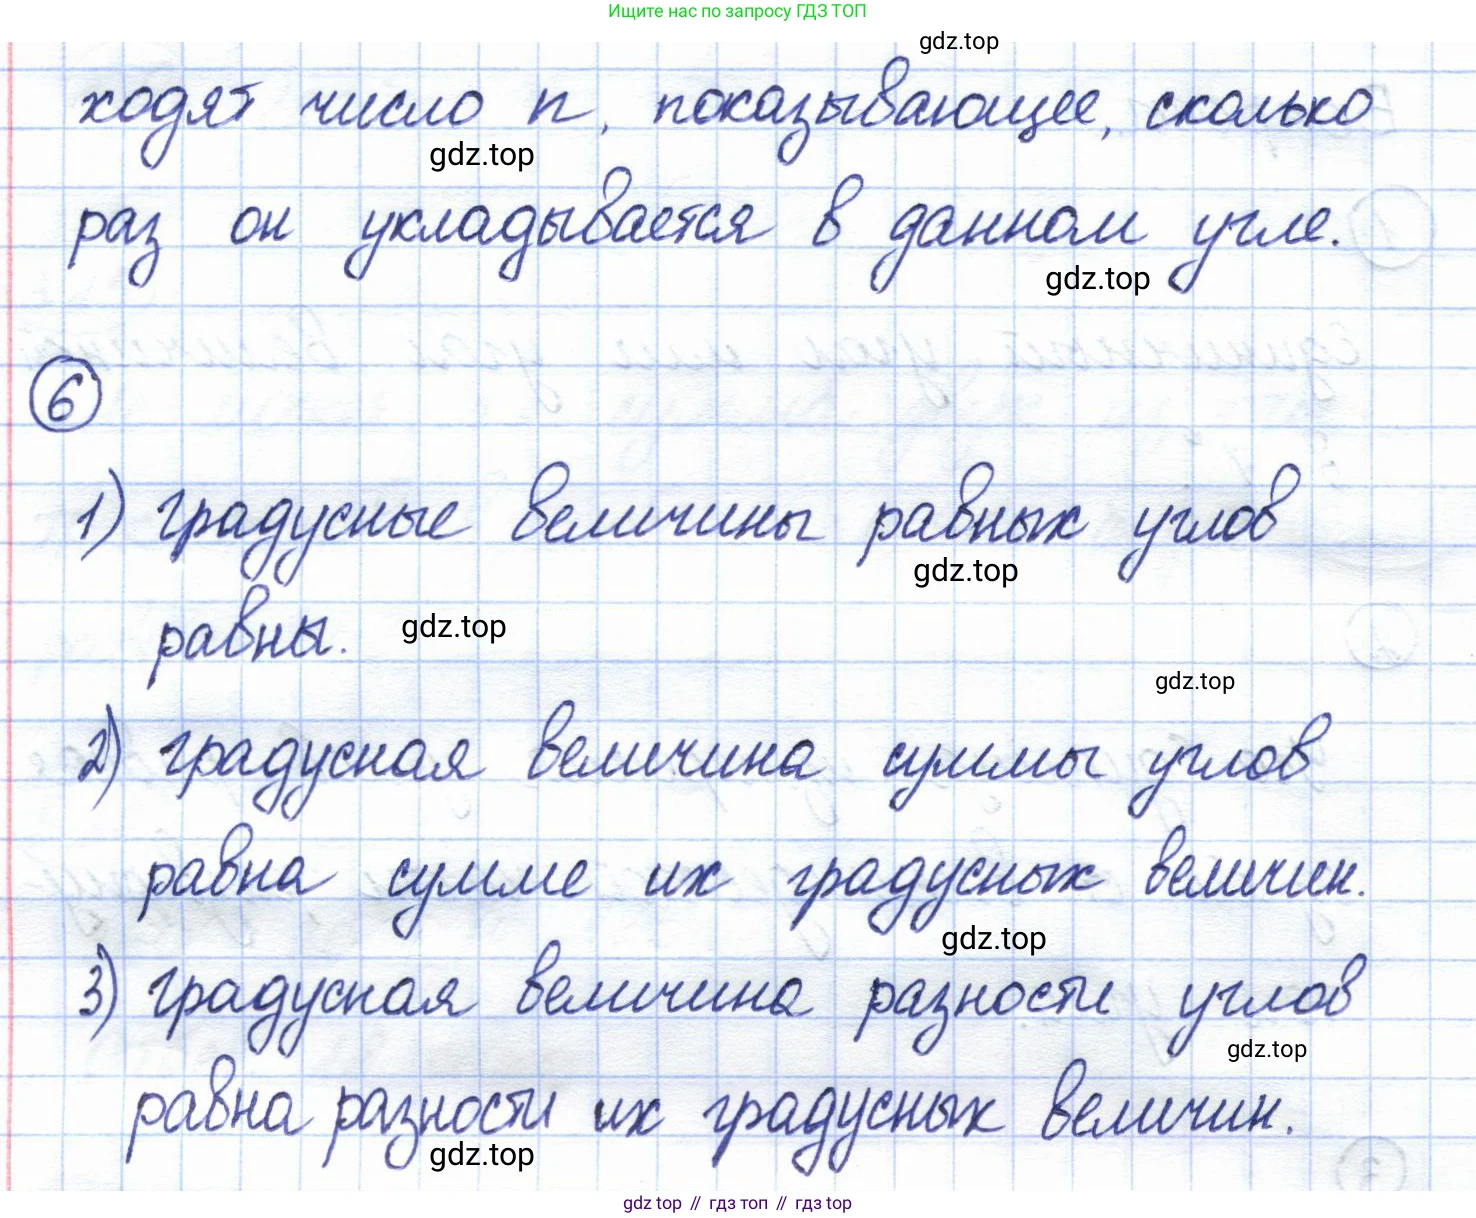 Ищите нас по запросу ГДЗ ТОП
gdz.top
ходят число n, показывающее, сколько
gdz.top
раз он укладывается в данном угле.
gdz.top
6
1) градусные величины равных углов
gdz.top
равны.
gdz.top
gdz.top
2) градусная величина суммы углов
равна сумме их градусных величин.
gdz.top
3) градусная величина разности углов
gdz.top
равна разности их градусных величин.
gdz.top
gdz.top // гдз топ // гдз top